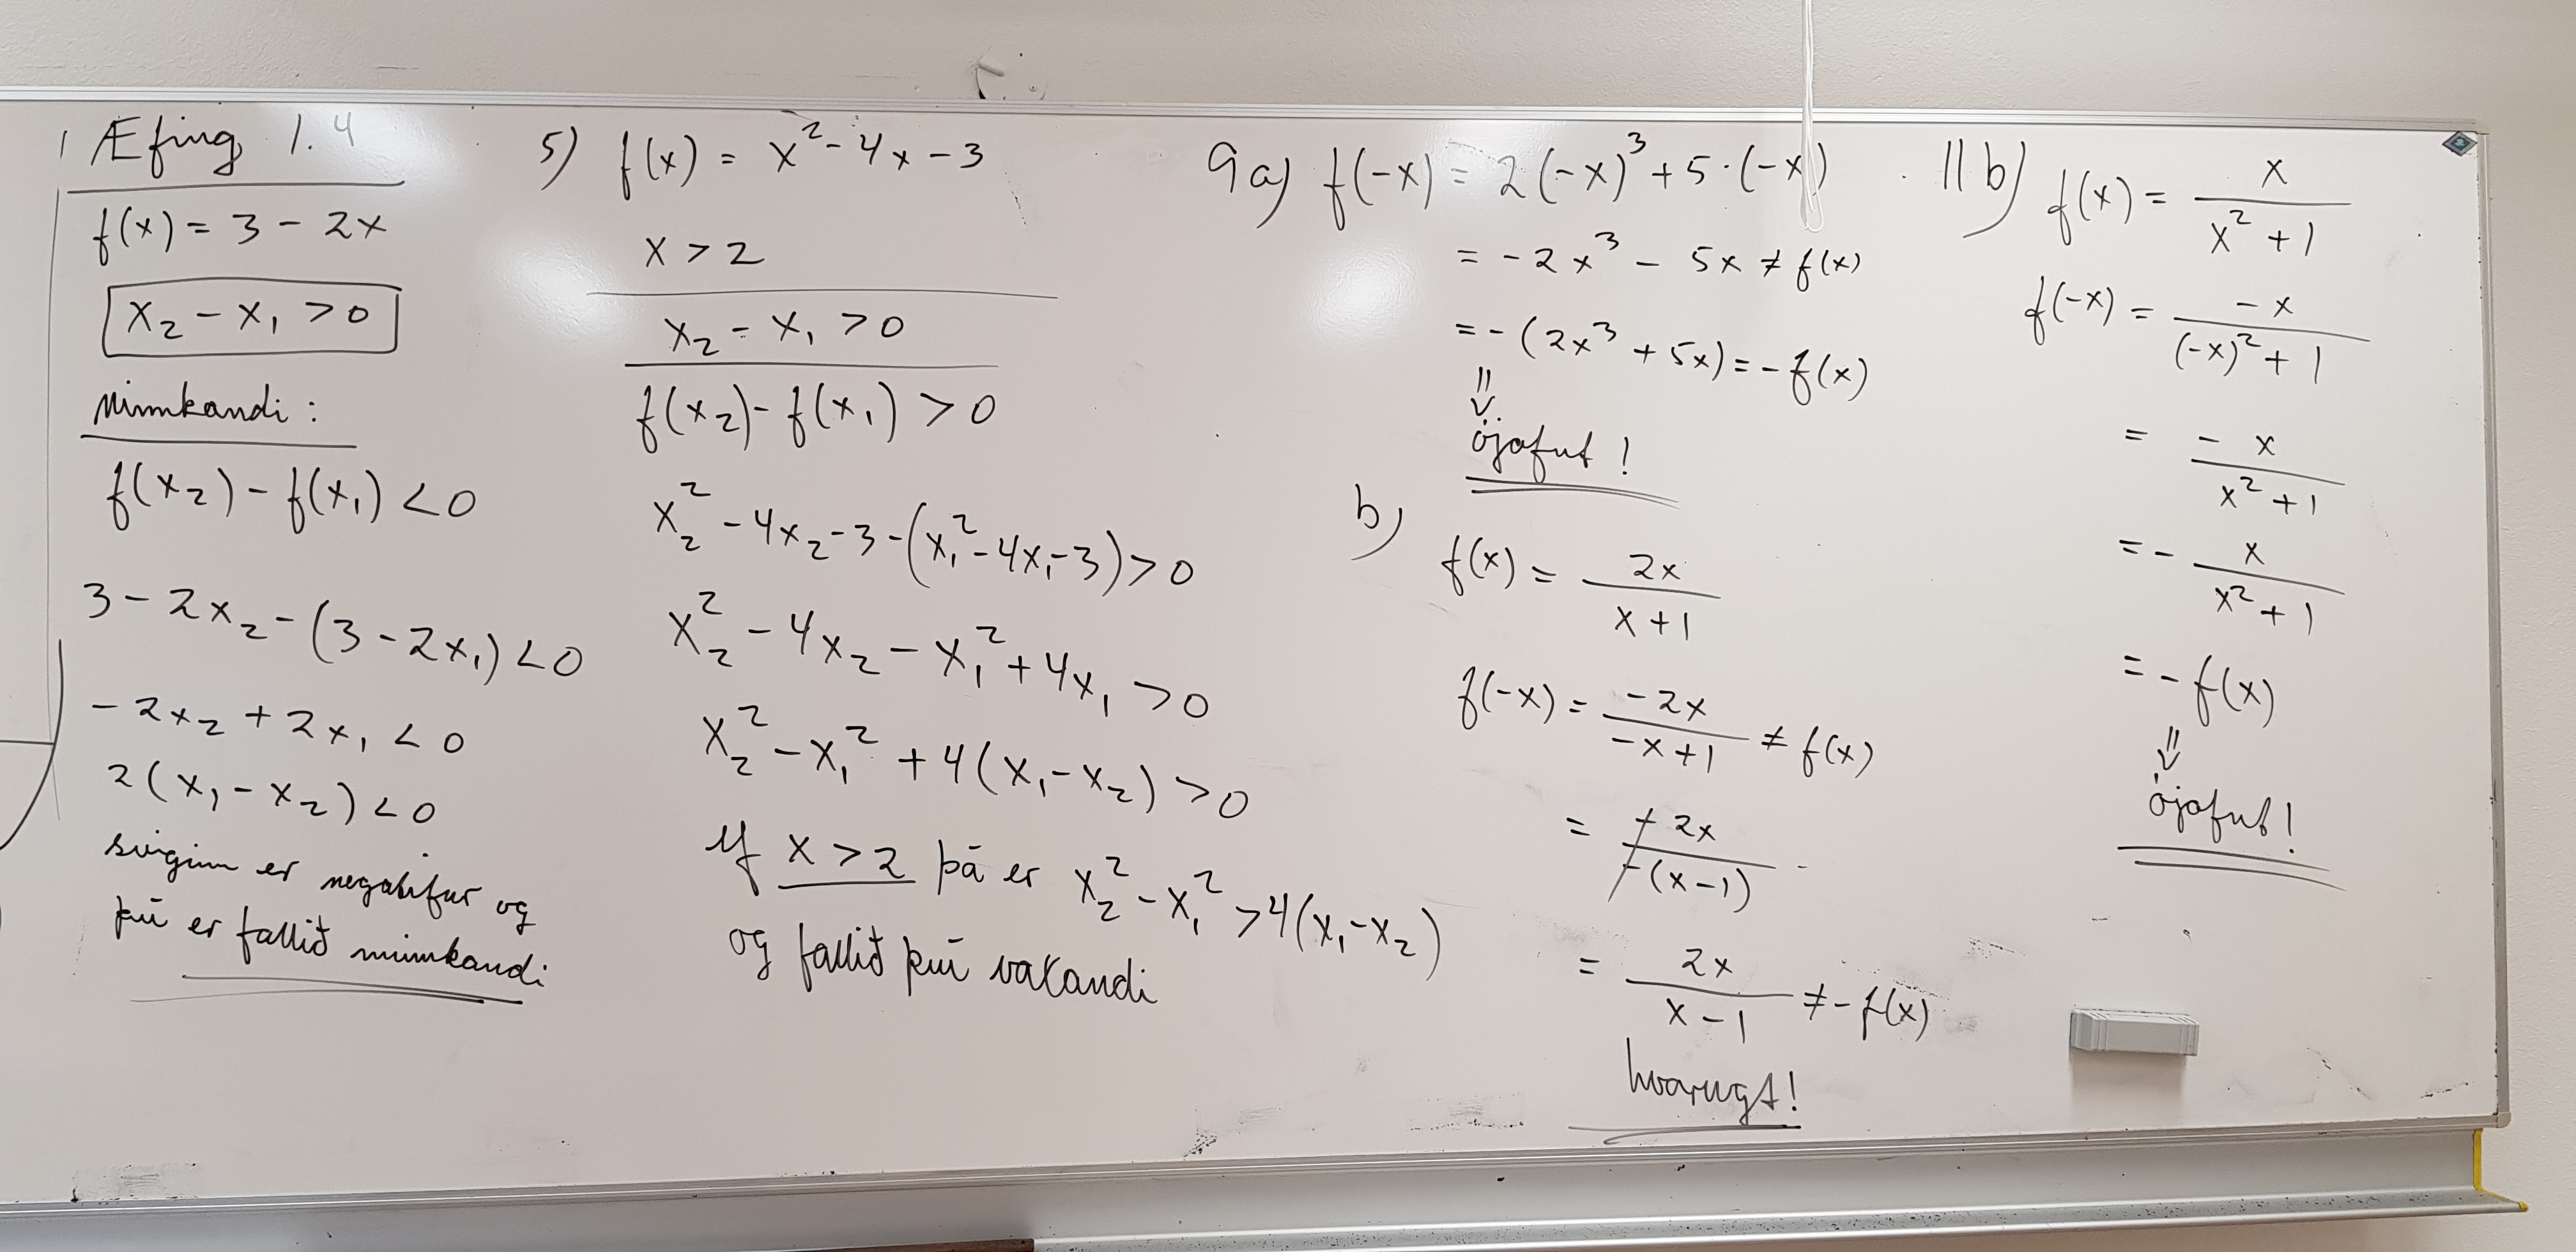 Æfing 1.4
f(x) = 3 - 2x
x₂ - x₁ > 0
minnkandi:
f(x₂) - f(x₁) < 0
3 - 2x₂ - (3 - 2x₁) < 0
- 2x₂ + 2x₁ < 0
2(x₁ - x₂) < 0
sviginn er negatífur og
því er fallið minnkandi
5) f(x) = x² - 4x - 3
x > 2
x₂ - x₁ > 0
f(x₂) - f(x₁) > 0
x₂² - 4x₂ - 3 - (x₁² - 4x₁ - 3) > 0
x₂² - 4x₂ - x₁² + 4x₁ > 0
x₂² - x₁² + 4(x₁ - x₂) > 0
ef x > 2 þá er x₂² - x₁² > 4(x₁ - x₂)
og fallið því vaxandi
9 a) f(-x) = 2(-x)³ + 5·(-x)
= -2x³ - 5x ≠ f(x)
= -(2x³ + 5x) = -f(x)
⇓
ójafnt!
b)
f(x) = 2x / (x + 1)
f(-x) = -2x / (-x + 1) ≠ f(x)
= -2x / -(x - 1)
= 2x / (x - 1) ≠ - f(x)
hvorugt!
11 b) f(x) = x / (x² + 1)
f(-x) = -x / ((-x)² + 1)
= -x / (x² + 1)
= - x / (x² + 1)
= - f(x)
⇓
ójafnt!